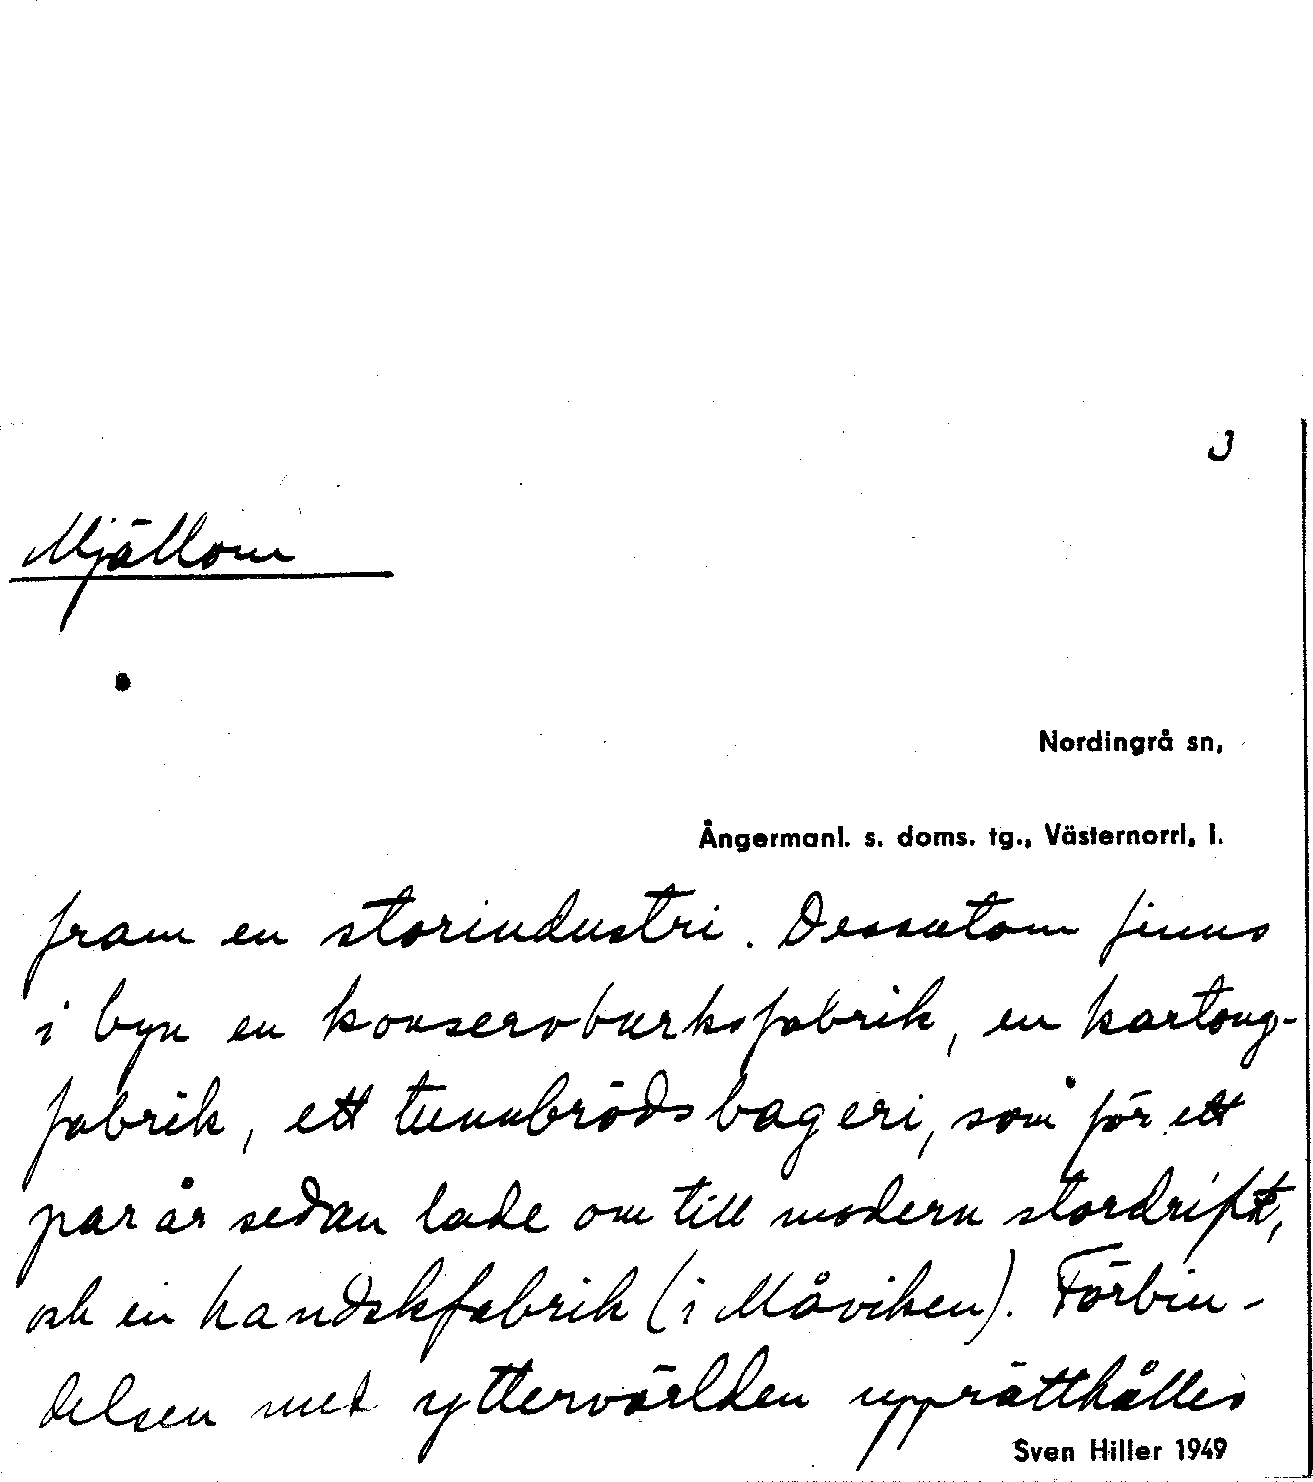 3
Mjällom
Nordingrå sn,
Ångermanl. s. doms. tg., Västernorrl, l.
fram en storindustri. Dessutom finns
i byn en konservburksfabrik, en kartong-
fabrik, ett tunnbrödsbageri, som för ett
par år sedan lade om till modern stordrift,
och en handskfabrik (i Måviken). Förbin-
delsen med yttervärlden upprätthålles
Sven Hiller 1949